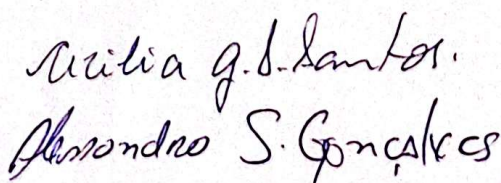 Cicilia G. S. Santos.
Alessandro S. Gonçalves